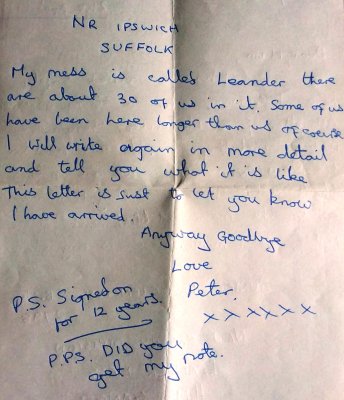 NR IPSWICH
SUFFOLK
My mess is called Leander there
are about 30 of us in it. Some of us
have been here longer than us of course
I will write again in more detail
and tell you what it is like
This letter is just to let you know
I have arrived.
Anyway Goodbye
Love
Peter.
x x x x x x
P.S. Signed on
for 12 years.
P.P.S. DID you
get my note.